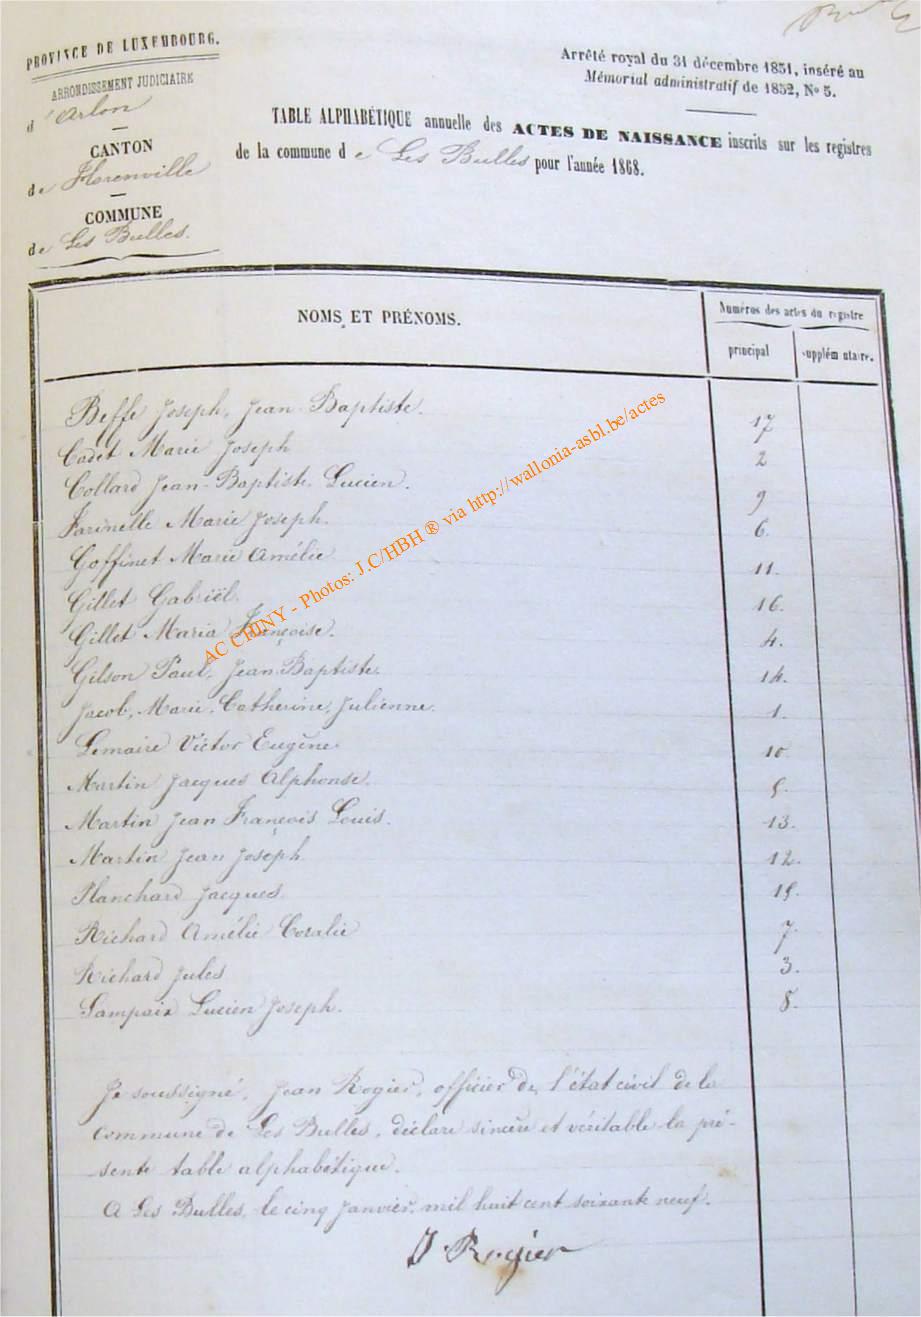 PROVINCE DE LUXEMBOURG.
ARRONDISSEMENT JUDICIAIRE
d'Arlon
CANTON
de Florenville
COMMUNE
de Les Bulles.
Arrêté royal du 31 décembre 1851, inséré au
Mémorial administratif de 1852, No 5.
TABLE ALPHABÉTIQUE annuelle des ACTES DE NAISSANCE inscrits sur les registres
de la commune de Les Bulles pour l'année 1868.
NOMS ET PRÉNOMS.
Numéros des actes du registre
principal
supplém ntaire.
Beffe Joseph, Jean-Baptiste. 17
Cadet Marie Joseph 2
Collard Jean-Baptiste, Lucien. 9
Farinelle Marie Joseph. 6.
Goffinet Marie Amélie 11.
Gillet Gabriël. 16.
Gillet Maria Françoise. 4.
Gilson Paul, Jean-Baptiste. 14.
Jacob, Marie, Catherine, Julienne. 1.
Lemaire Victor Eugène 10.
Martin Jacques Alphonse. 5.
Martin Jean François Louis. 13.
Martin Jean Joseph. 12.
Planchard Jacques. 15.
Richard Amélie Coralie 7
Richard Jules 3.
Sampaix Lucien Joseph. 8.
Je soussigné, Jean Rogier, officier de l'état civil de la
commune de Les Bulles, déclare sincère et véritable la pré-
sente table alphabétique.
A Les Bulles, le cinq Janvier, mil huit cent soixante neuf.
J. Rogier
AC CHINY - Photos: J.C/HBH ® via http://wallonia-asbl.be/actes